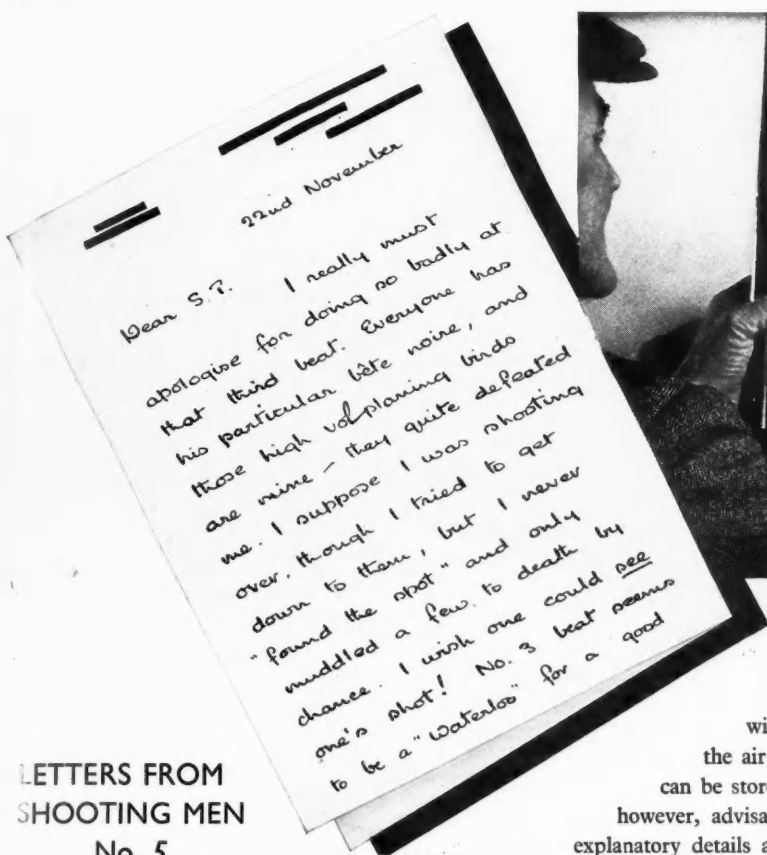 22nd November
Dear S.P. I really must
apologise for doing so badly at
that third beat. Everyone has
his particular bête noire, and
those high volplaning birds
are mine – they quite defeated
me. I suppose I was shooting
over, though I tried to get
down to them, but I never
"found the spot" and only
muddled a few to death by
chance. I wish one could see
one's shot! No. 3 beat seems
to be a "Waterloo" for a good
LETTERS FROM
SHOOTING MEN
No. 5
the air
can be
however,
explanatory details